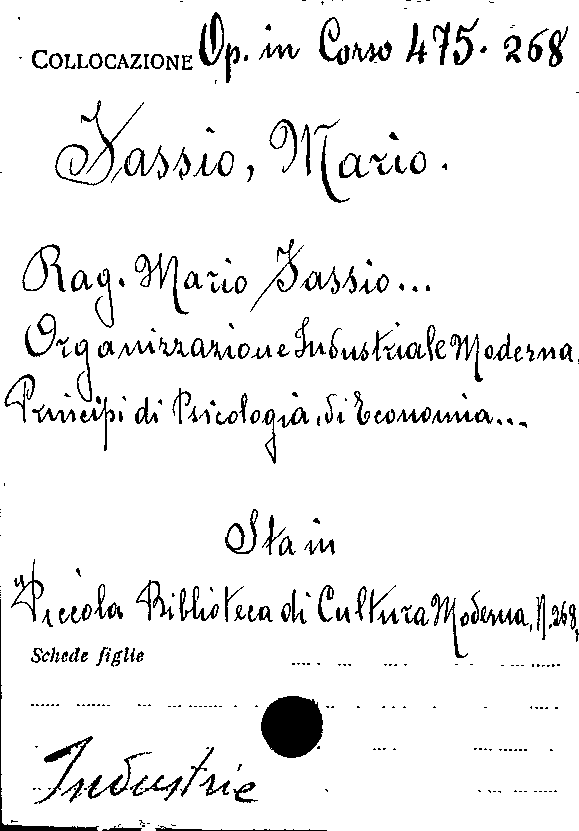 COLLOCAZIONE Op. in Corso 475. 268
Fassio, Mario.
Rag. Mario Fassio...
Organizzazione Industriale Moderna,
Principi di Psicologia, di Economia...
Sta in
"Piccola Biblioteca di Cultura Moderna, N. 268,
Schede figlie
Industrie